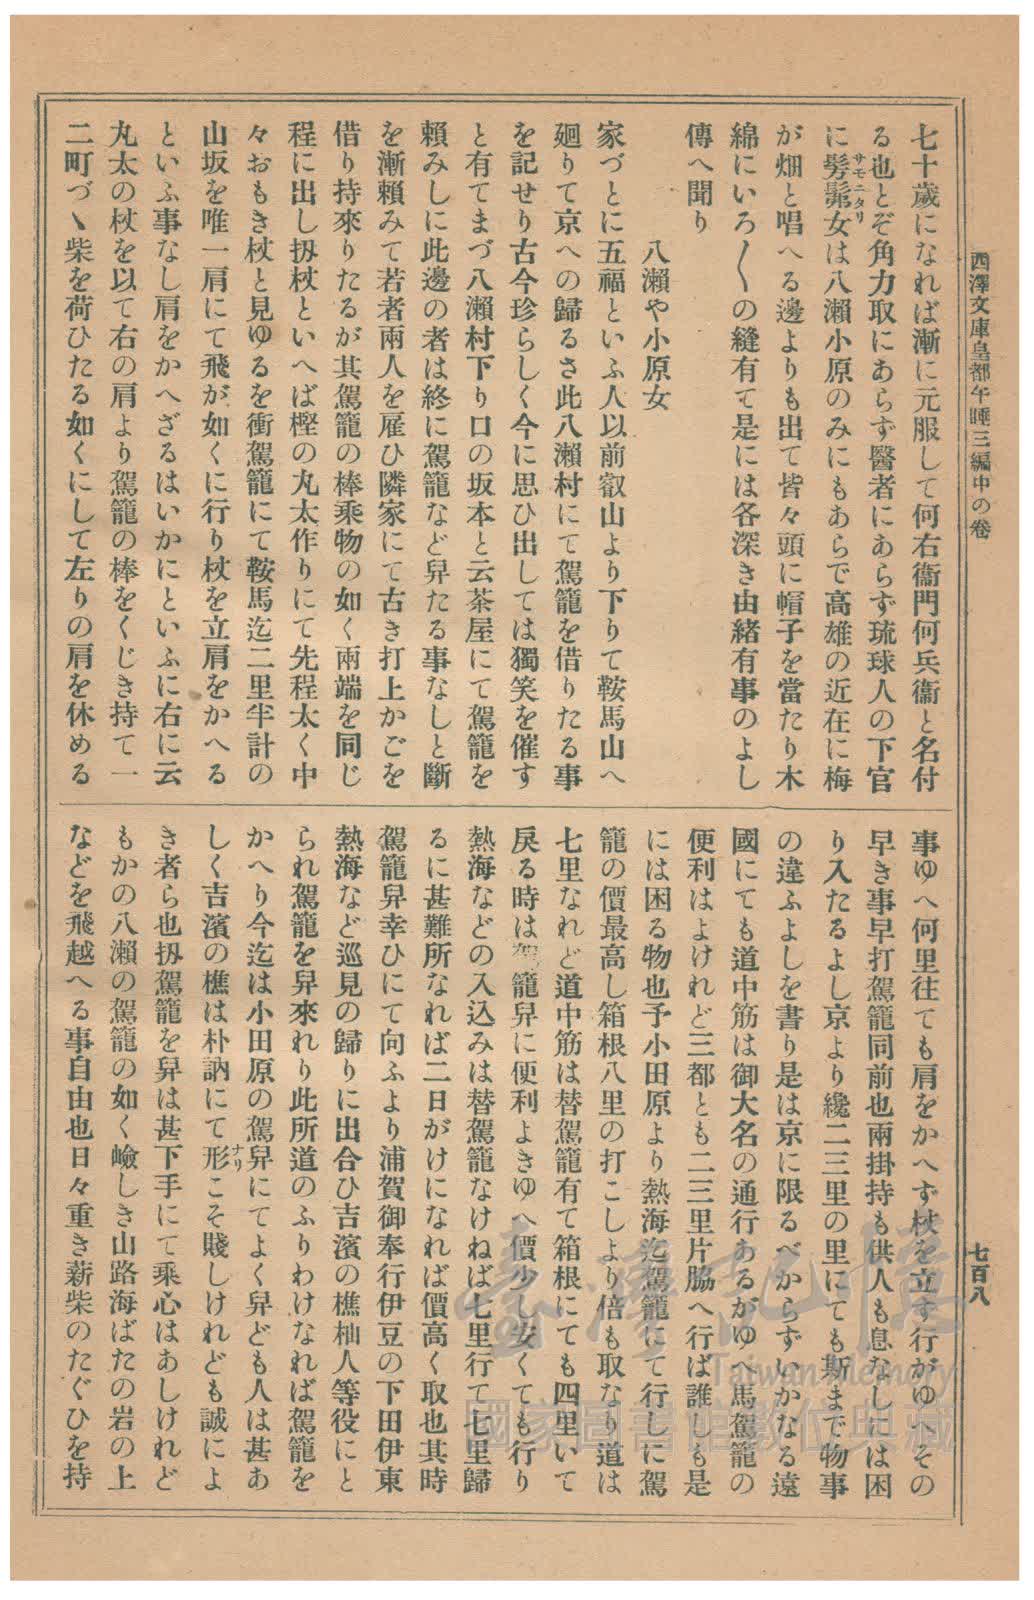 西澤文庫皇都午睡三編中の卷
七百八
七十歲になれば漸に元服して何右衞門何兵衞と名付
る也とぞ角力取にあらず醫者にあらず琉球人の下官
に髣髴女は八瀨小原のみにもあらで高雄の近在に梅
サモニタリ
が畑と唱へる邊よりも出て皆々頭に帽子を當たり木
綿にいろ〳〵の縫有て是には各深き由緒有事のよし
傳へ聞り
八瀨や小原女
家づとに五福といふ人以前叡山より下りて鞍馬山へ
廻りて京への歸るさ此八瀨村にて駕籠を借りたる事
を記せり古今珍らしく今に思ひ出しては獨笑を催す
と有てまづ八瀨村下り口の坂本と云茶屋にて駕籠を
賴みしに此邊の者は終に駕籠など舁たる事なしと斷
を漸賴みて若者兩人を雇ひ隣家にて古き打上かごを
借り持來りたるが其駕籠の棒乘物の如く兩端を同じ
程に出し扨杖といへば樫の丸太作りにて先程太く中
々おもき杖と見ゆるを衝駕籠にて鞍馬迄二里半計の
山坂を唯一肩にて飛が如くに行り杖を立肩をかへる
といふ事なし肩をかへざるはいかにといふに右に云
丸太の杖を以て右の肩より駕籠の棒をくじき持て一
二町づゝ柴を荷ひたる如くにして左りの肩を休める
事ゆへ何里往ても肩をかへず杖を立ず行がゆへその
早き事早打駕籠同前也兩掛持も供人も息なしには困
り入たるよし京より纔二三里の里にても斯まで物事
の違ふよしを書り是は京に限るべからずいかなる遠
國にても道中筋は御大名の通行あるがゆへ馬駕籠の
便利はよけれど三都とも二三里片脇へ行ば誰しも是
には困る物也予小田原より熱海迄駕籠にて行しに駕
籠の價最高し箱根八里の打こしより倍も取なり道は
七里なれど道中筋は替駕籠有て箱根にても四里いて
戾る時は駕籠舁に便利よきゆへ價少し安くても行り
熱海などの入込みは替駕籠なけねば七里行て七里歸
るに甚難所なれば二日がけになれば價高く取也其時
駕籠舁幸ひにて向ふより浦賀御奉行伊豆の下田伊東
熱海など巡見の歸りに出合ひ吉濱の樵杣人等役にと
られ駕籠を舁來れり此所道のふりわけなれば駕籠を
かへり今迄は小田原の駕舁にてよく舁ども人は甚あ
しく吉濱の樵は朴訥にて形こそ賤しけれども誠によ
ナリ
き者ら也扨駕籠を舁は甚下手にて乘心はあしけれど
もかの八瀨の駕籠の如く嶮しき山路海ばたの岩の上
などを飛越へる事自由也日々重き薪柴のたぐひを持
臺灣記憶
Taiwan Memory
國家圖書館數位典藏